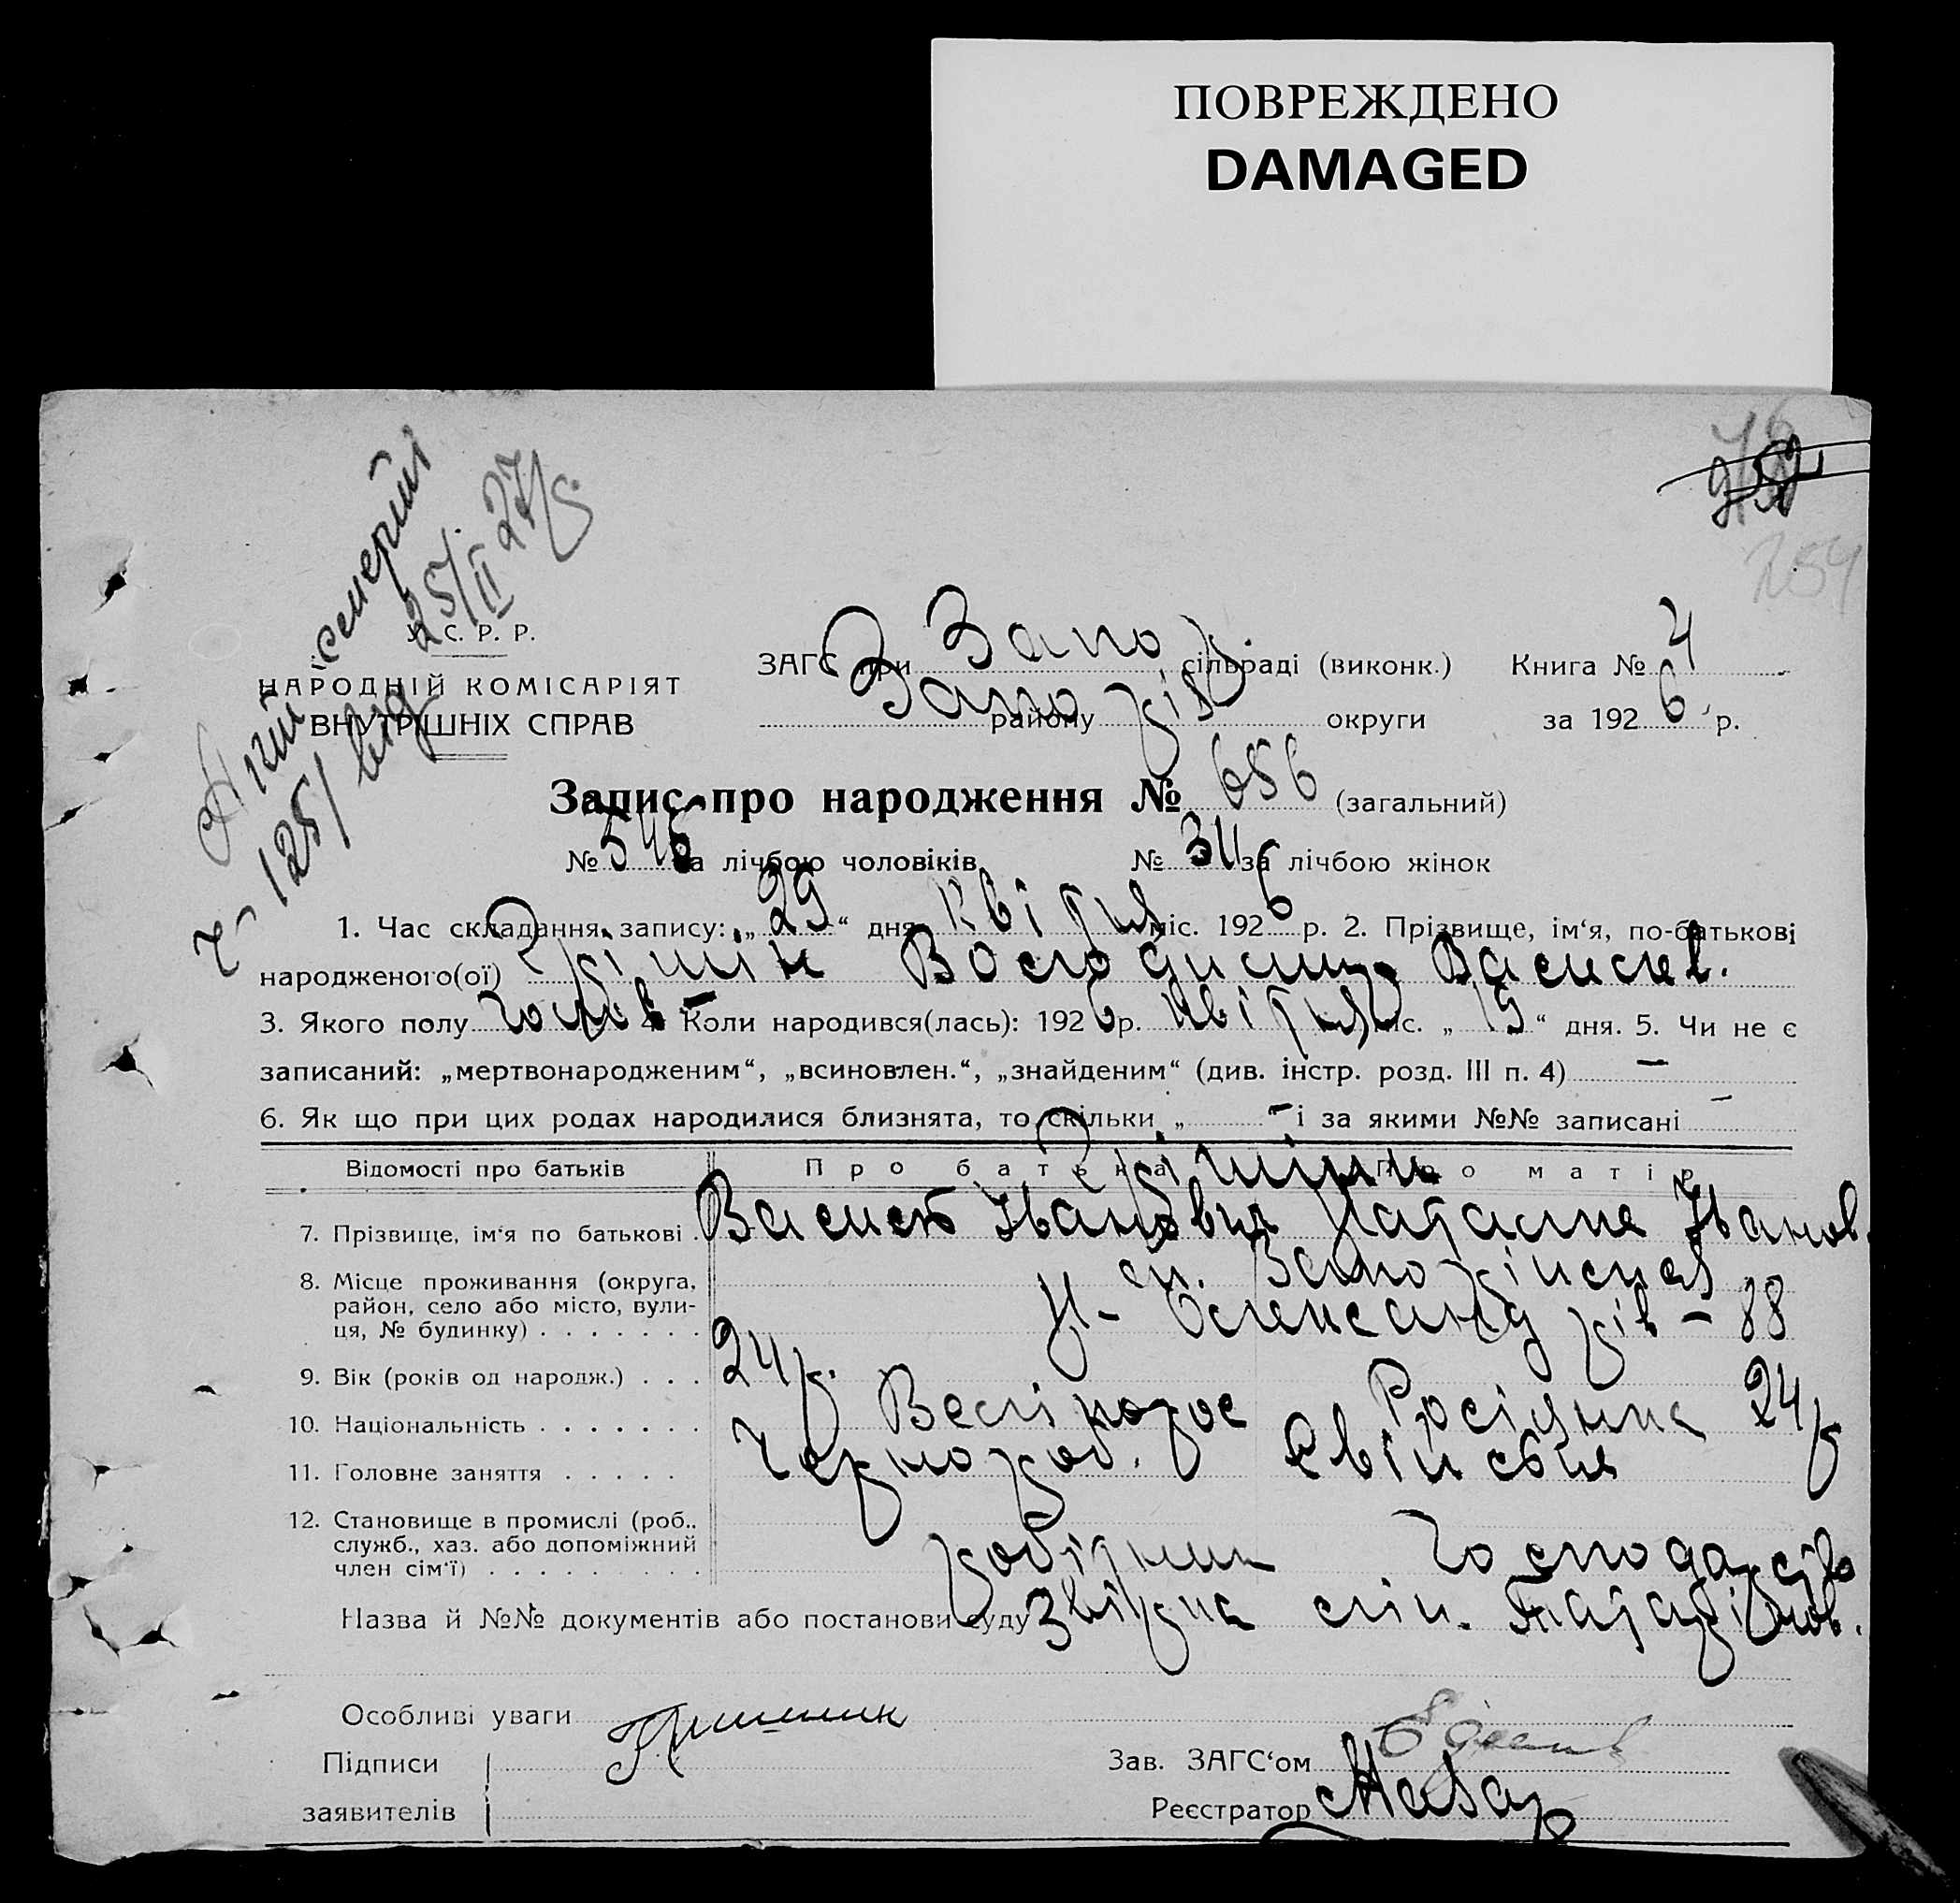 ПОВРЕЖДЕНО
DAMAGED
254
Акт смерти
Ч-125/від 25/II 27 р.
У. С. Р. Р.
НАРОДНІЙ КОМІСАРІЯТ
ВНУТРІШНІХ СПРАВ
ЗАГС при Запор. сільраді (виконк.) Книга № 4
району Запоріз округи за 1926 р.
Запис про народження № 656 (загальний)
№ 345 за лічбою чоловіків № 311 за лічбою жінок
1. Час складання запису: „29“ дня квітня міс. 1926 р. 2. Прізвище, ім‘я, по-батькові
народженого(ої) Грішин Володимир Васильев.
3. Якого полу Чолов- 4. Коли народився(лась): 1926 р. квітня міс. „19“ дня. 5. Чи не є
записаний: „мертвонародженим“, „всиновлен.“, „знайденим“ (див. інстр. розд. III п. 4) —
6. Як що при цих родах народилися близнята, то скільки „ — і за якими №№ записані —
Відомості про батьків Про батька Про матір
Грішини
7. Прізвище, ім‘я по батькові Василь Іванович Наталка Іванов.
8. Місце проживання (округа, район, село або місто, вулиця, № будинку) ст. Запоріжская
Н-Олександрів - 88
9. Вік (років од народж.) 24 р. 24 р.
10. Національність Велікорос Росіянка
11. Головне заняття Чорнороб.
12. Становище в промислі (роб., служб., хаз. або допоміжний член сім‘ї) робітник Господарство
Назва й №№ документів або постанови суду
Особливі уваги
Підписи заявителів Гришин
Зав. ЗАГС‘ом
Реєстратор